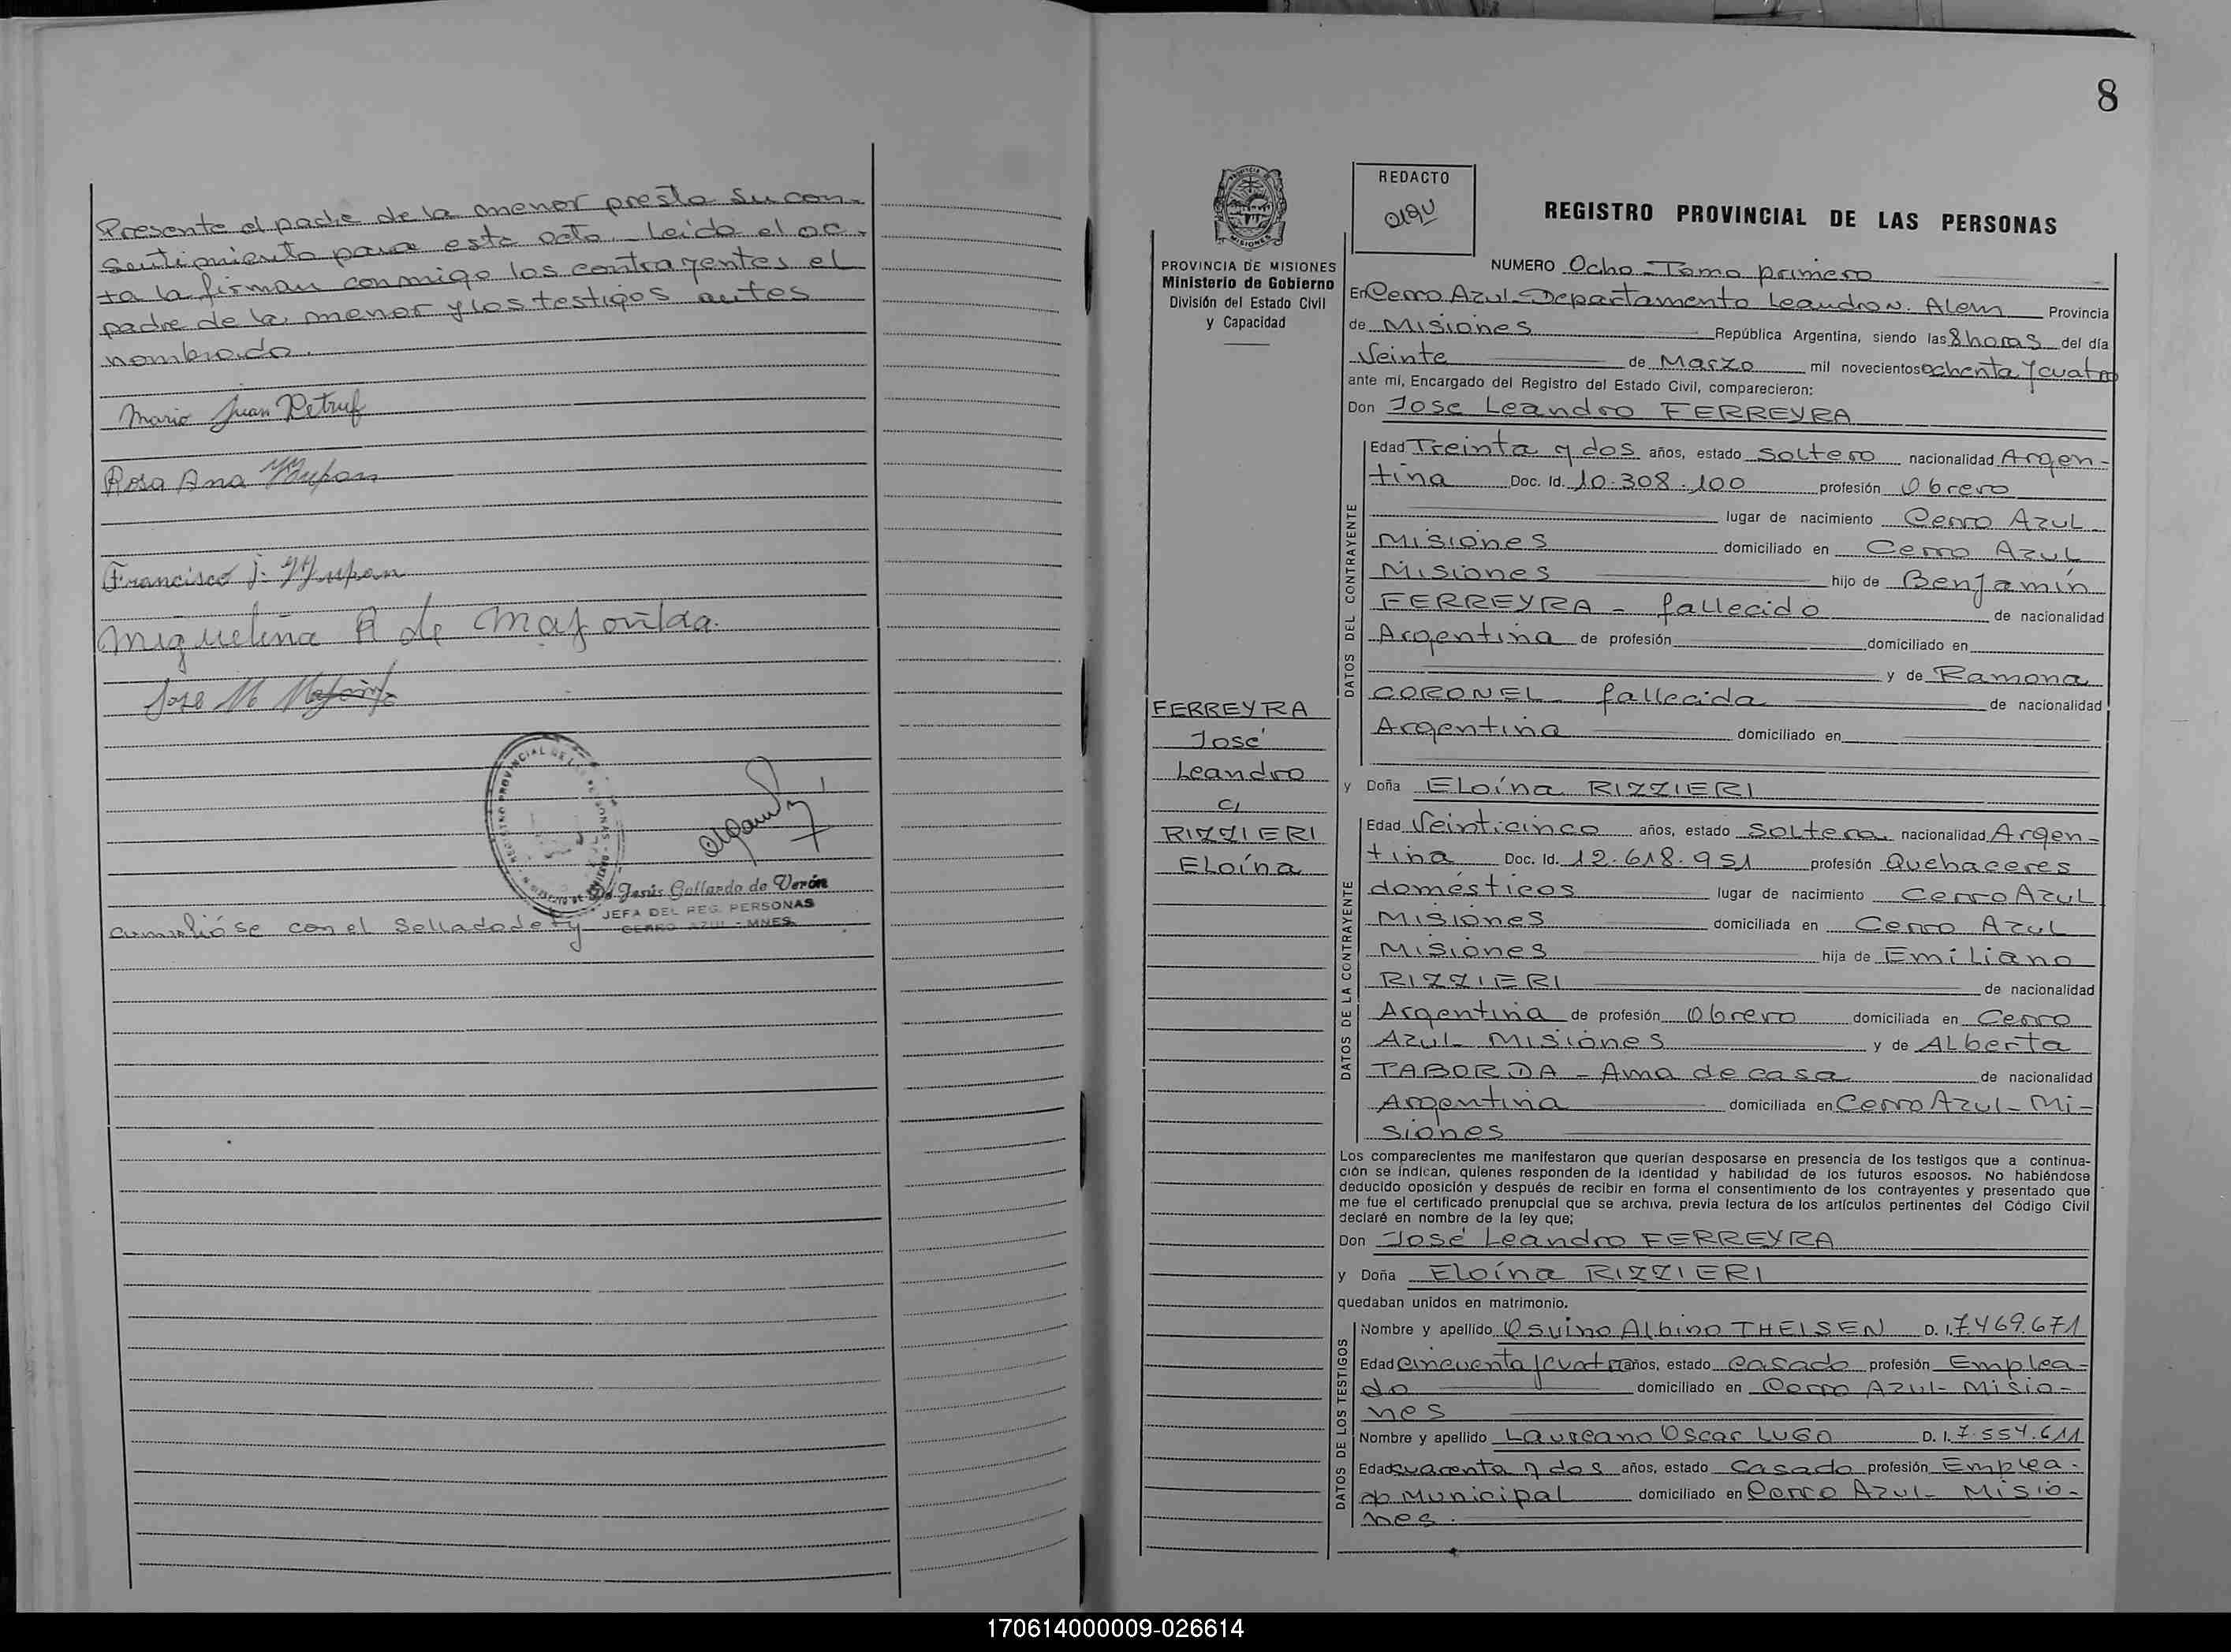 Presente el padre de la menor presta su con-
sentimiento para este acto. Leida el ac-
ta la firman conmigo los contrayentes el
padre de la menor y los testigos antes
nombrado.
Mario Juan Petruf
Rosa Ana
Francisco J.
Miguelina A de Mafonilda
Jose M
de Jesús Gallardo de Verón
JEFA DEL REG. PERSONAS
CERRO AZUL - MNES.
cumplióse con el Sellado de ty
8
REDACTO
REGISTRO PROVINCIAL DE LAS PERSONAS
PROVINCIA DE MISIONES
Ministerio de Gobierno
División del Estado Civil
y Capacidad
NUMERO Ocho - Tomo primero
En Cerro Azul - Departamento Leandro N. Alem Provincia
de Misiones República Argentina, siendo las 8 horas del día
Veinte de Marzo mil novecientos ochenta y cuatro
ante mí, Encargado del Registro del Estado Civil, comparecieron:
Don Jose Leandro FERREYRA
DATOS DEL CONTRAYENTE
Edad Treinta y dos años, estado soltero nacionalidad Argen-
tina Doc. Id. 10.308.100 profesión Obrero
lugar de nacimiento Cerro Azul
Misiones domiciliado en Cerro Azul
Misiones hijo de Benjamín
FERREYRA - fallecido de nacionalidad
Argentina de profesión domiciliado en
y de Ramona
CORONEL - fallecida de nacionalidad
Argentina domiciliado en
FERREYRA
José
Leandro
c/
RIZZIERI
Eloína
y Doña Eloína RIZZIERI
DATOS DE LA CONTRAYENTE
Edad Veinticinco años, estado soltera nacionalidad Argen-
tina Doc. Id. 12.618.951 profesión Quehaceres
domésticos lugar de nacimiento Cerro Azul
Misiones domiciliada en Cerro Azul
Misiones hija de Emiliano
RIZZIERI de nacionalidad
Argentina de profesión Obrero domiciliada en Cerro
Azul - Misiones y de Alberta
TABORDA - Ama de casa de nacionalidad
Argentina domiciliada en Cerro Azul - Mi-
siones
Los comparecientes me manifestaron que querían desposarse en presencia de los testigos que a continua-
ción se indican, quienes responden de la identidad y habilidad de los futuros esposos. No habiéndose
deducido oposición y después de recibir en forma el consentimiento de los contrayentes y presentado que
me fue el certificado prenupcial que se archiva, previa lectura de los artículos pertinentes del Código Civil
declaré en nombre de la ley que;
Don José Leandro FERREYRA
y Doña Eloína RIZZIERI
quedaban unidos en matrimonio.
DATOS DE LOS TESTIGOS
Nombre y apellido Osvino Albino THEISEN D. I. 7.469.671
Edad cincuenta y cuatro años, estado casado profesión Emplea-
do domiciliado en Cerro Azul - Misio-
nes
Nombre y apellido Laureano Oscar LUGO D. I. 7.554.611
Edad cuarenta y dos años, estado casado profesión Emplea-
do Municipal domiciliado en Cerro Azul - Misio-
nes.
170614000009-026614